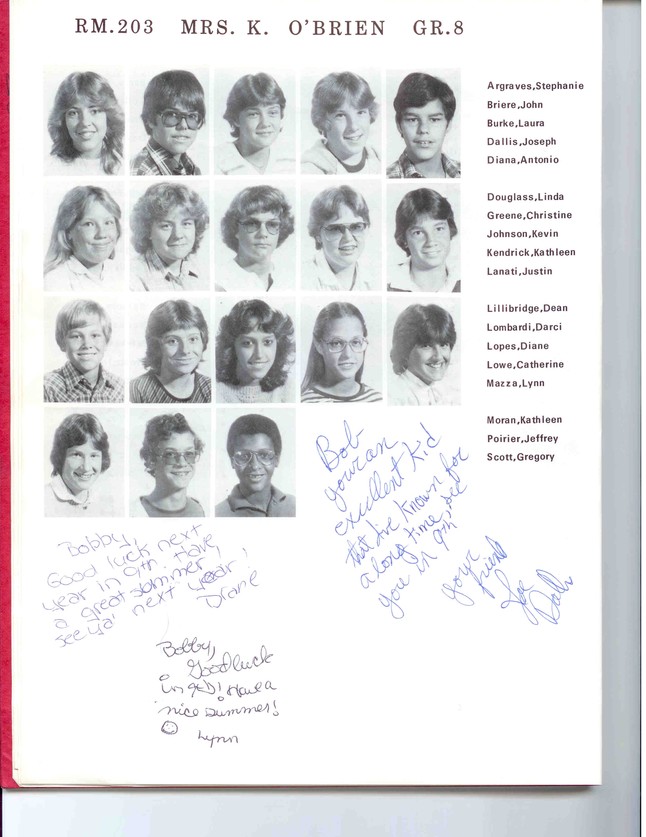 RM.203 MRS. K. O'BRIEN GR.8
Argraves,Stephanie
Briere,John
Burke,Laura
Dallis,Joseph
Diana,Antonio
Douglass,Linda
Greene,Christine
Johnson,Kevin
Kendrick,Kathleen
Lanati,Justin
Lillibridge,Dean
Lombardi,Darci
Lopes,Diane
Lowe,Catherine
Mazza,Lynn
Moran,Kathleen
Poirier,Jeffrey
Scott,Gregory
Bob
your an
excellent kid
that I've known for
a long time, see
you in 9th
your
friend
Joe
Dallis
Bobby,
Good luck next
year in 9th. Have
a great summer,
see ya' next year!
Diane
Bobby,
Good luck
in 9D! Have a
nice summer!
Lynn